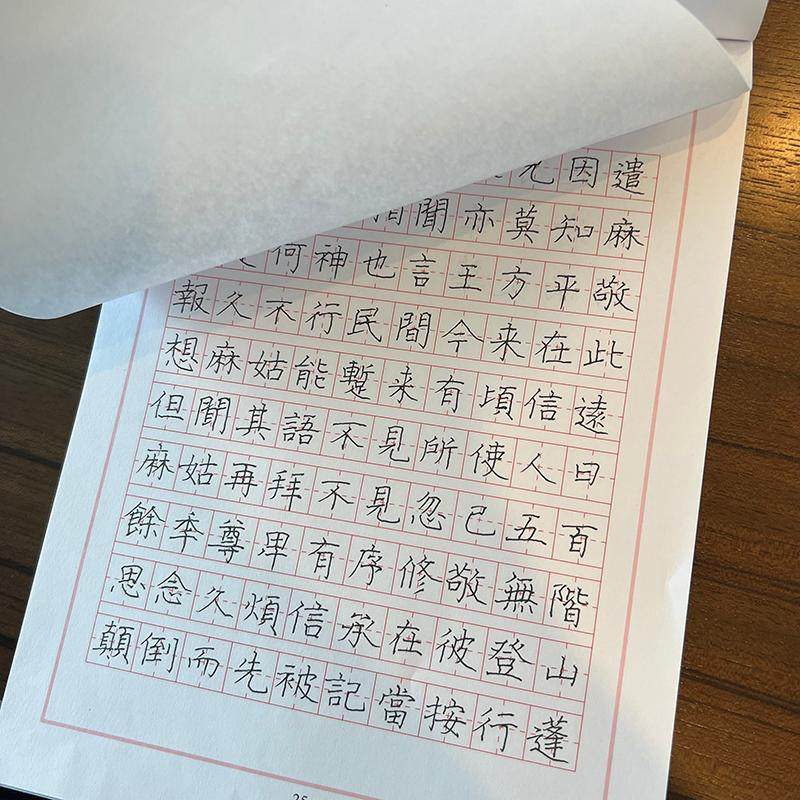 因遣
聞亦莫知麻
何神也言王方平敬
報久不行民間今来在此
想麻姑能蹔来有頃信遠
但聞其語不見所使人曰
麻姑再拜不見忽已五百
餘秊尊卑有序修敬無階
思念久煩信承在彼登山
顛倒而先被記當按行蓬
25